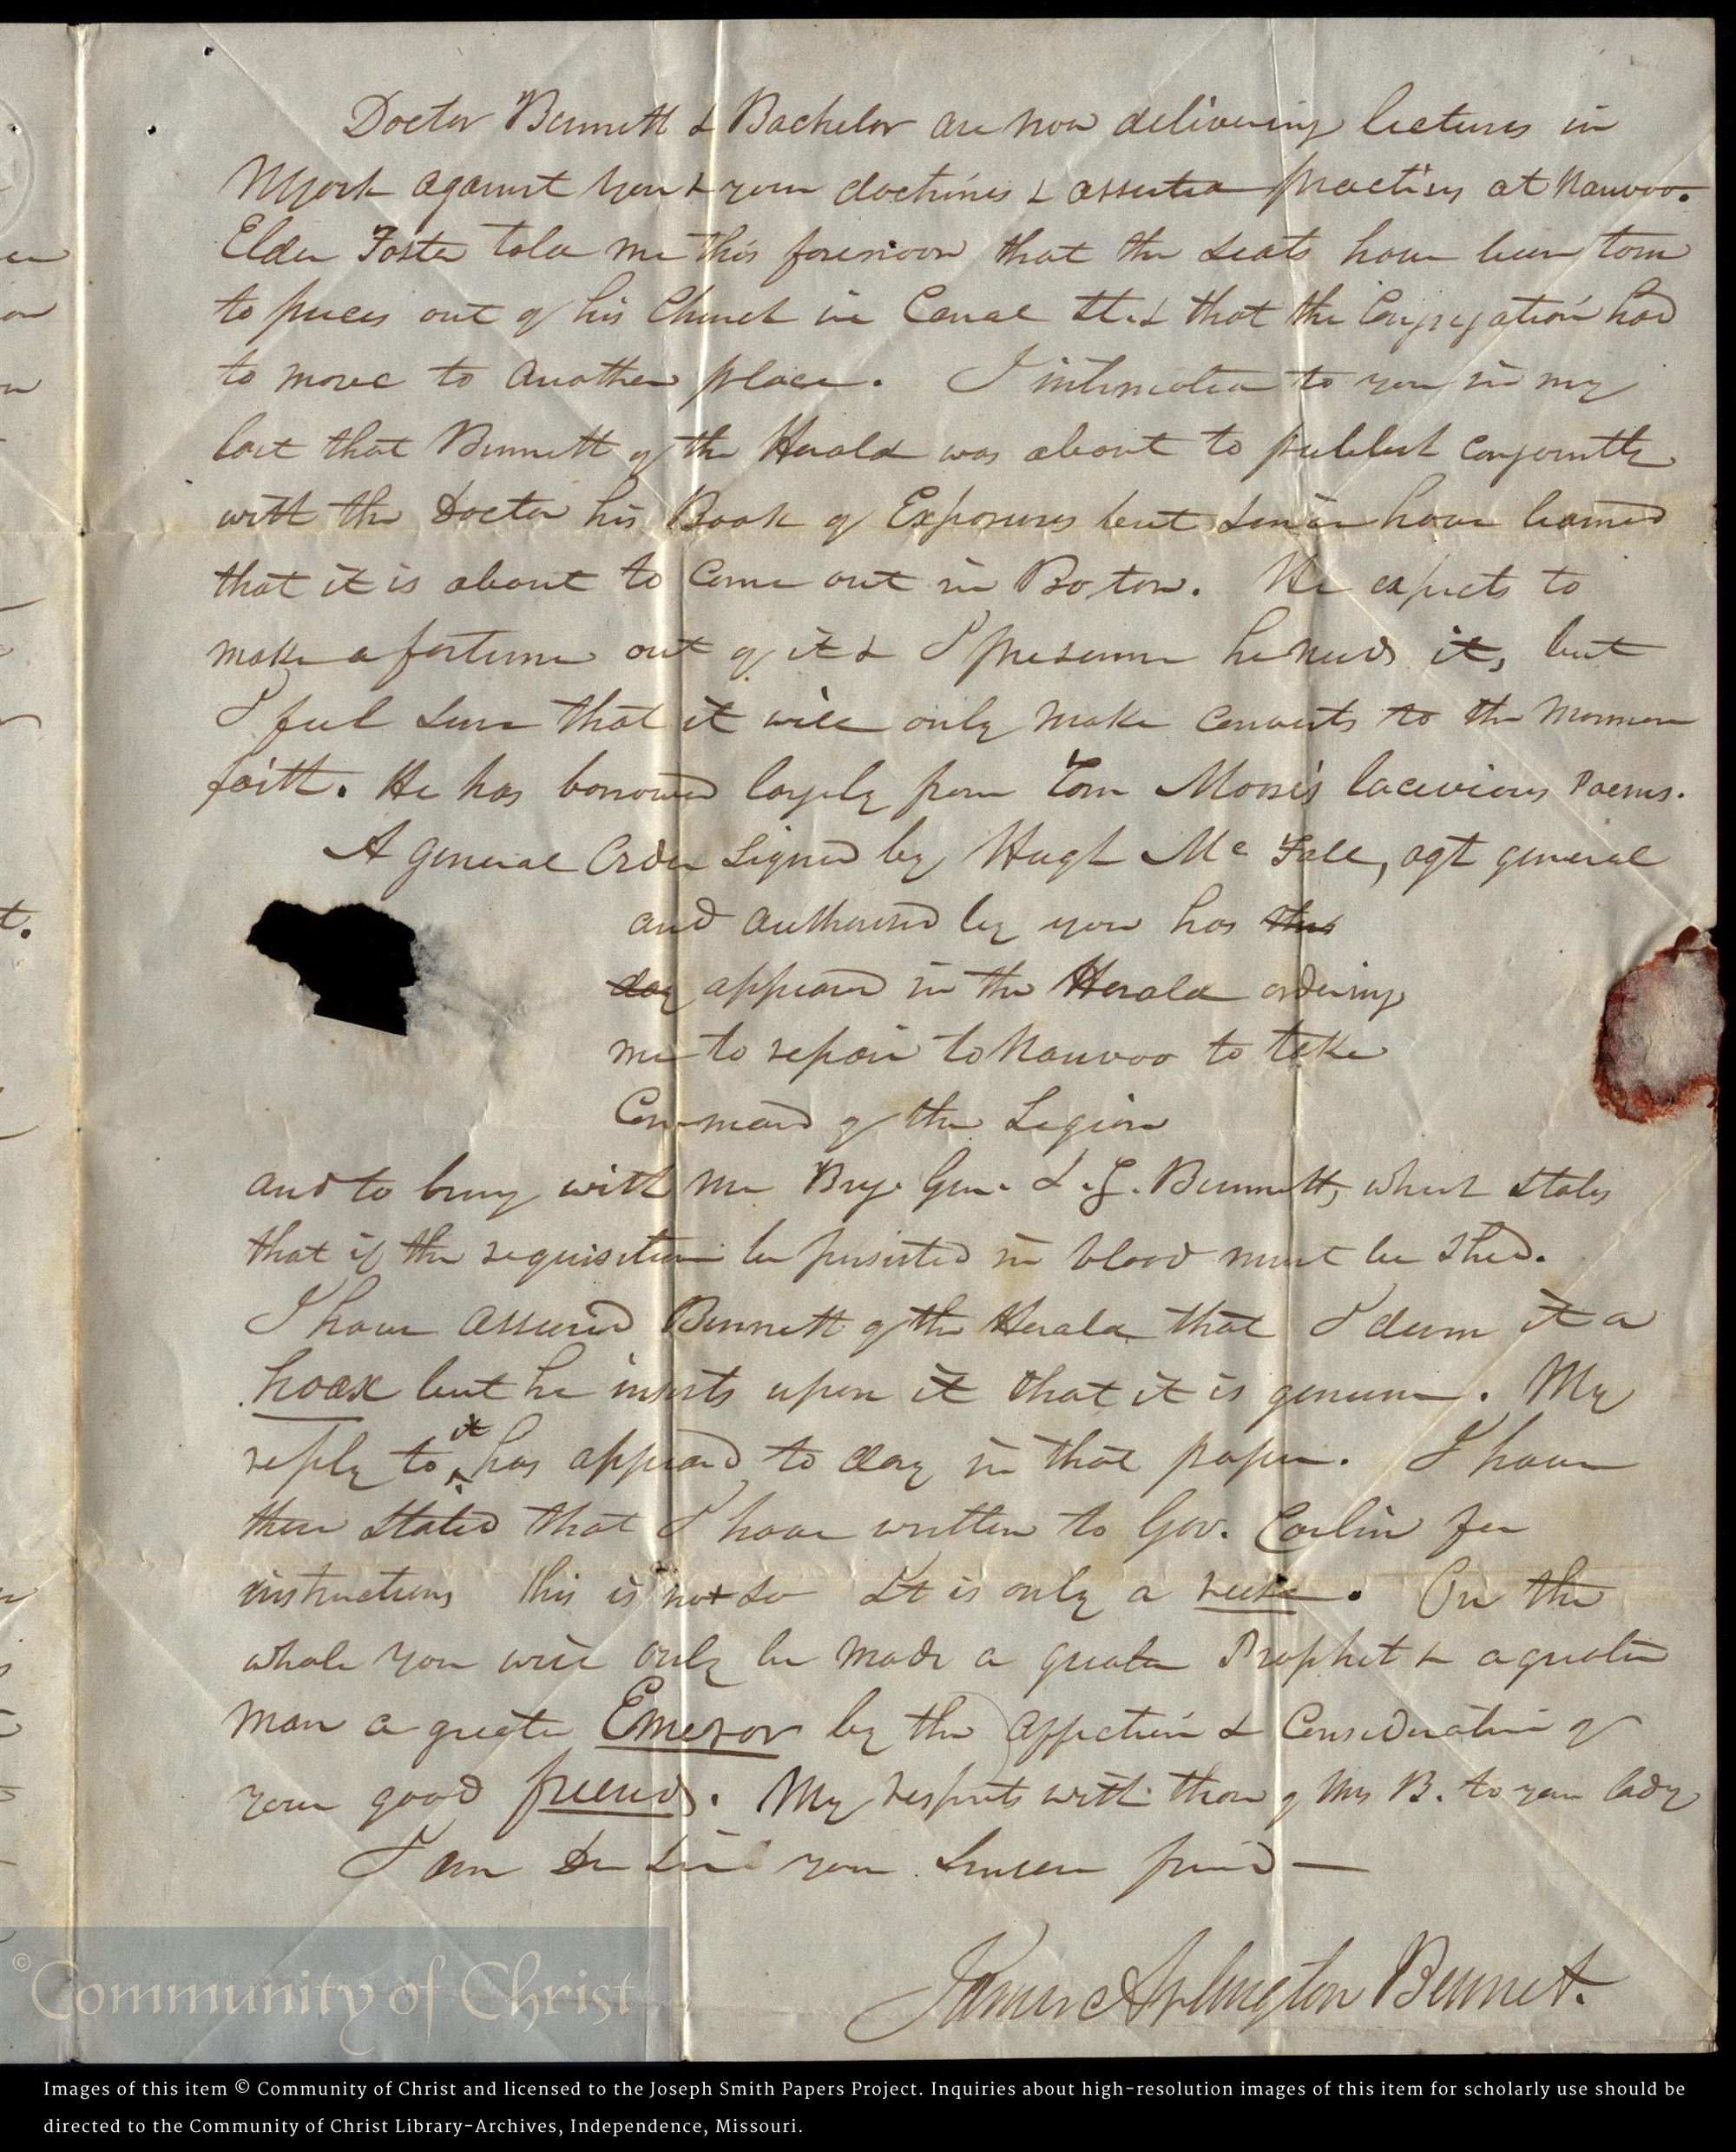 Doctor Bennett & Bachelor are now delivering lectures in
NYork against you & your doctrines & asserted practises at Nauvoo.
Elder Foster told me this forenoon that the seats have been torn
to pieces out of his Church in Canal St. & that the Congregation had
to move to another place. I intimated to you in my
last that Bennett of the Herald was about to publish conjointly
with the Doctor his Book of Exposures but since have learned
that it is about to come out in Boston. He expects to
make a fortune out of it & I presume he needs it, but
I feel sure that it will only make converts to the Mormon
faith. He has borrowed largely from Tom Moore's lacivious Poems.
A general Order signed by Hugh Mc Fall, agt general
and authorised by you has this
day appeared in the Herald ordering
me to repair to Nauvoo to take
Command of the Legion
and to bring with me Brig. Gen. J. G. Bennett, which states
that if the requisition be persisted in blood must be shed.
I have assured Bennett of the Herald that I deem it a
hoax but he insists upon it that it is genuine. My
reply to it has appeared to day in that paper. I have
there stated that I have written to Gov. Carlin for
instructions this is not so It is only a ruse. On the
whole you will only be made a greater Prophet & a greater
man a greater Emeror by the affection & Consideration of
your good friends. My respects with those of Mrs B. to your lady
I am Dr Sir your Sincere friend —
James Arlington Bennet.
©Community of Christ
Images of this item © Community of Christ and licensed to the Joseph Smith Papers Project. Inquiries about high-resolution images of this item for scholarly use should be
directed to the Community of Christ Library-Archives, Independence, Missouri.